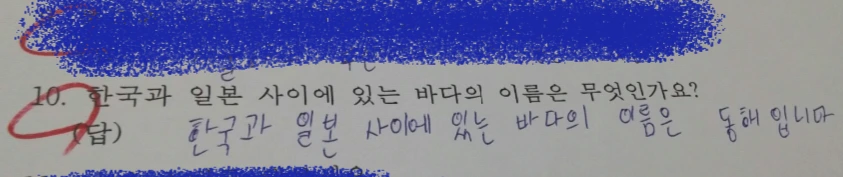 10. 한국과 일본 사이에 있는 바다의 이름은 무엇인가요?
(답) 한국과 일본 사이에 있는 바다의 이름은 동해 입니다